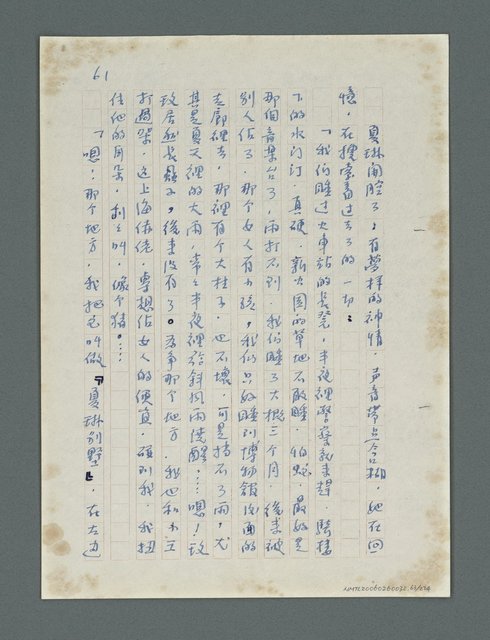 61
夏琳開腔了，有夢樣的神情，声音帶点含糊，她在回
憶，在摸索着过去了的一切：
「我们睡过火車站的長凳，半夜裡警察就来趕，騎樓
下的水门汀，真硬，新公园的草地不敢睡，怕蛇，最好是
那個音樂台了，雨打不到，我们睡了大概三个月，後来被
別人佔了，那个女人有小孩，我们只好睡到博物館後面的
走廊裡去，那裡有个大柱子，也不壞，可是擋不了雨，尤
其是夏天裡的大雨，常之半夜裡給斜风雨澆醒……嗯！玫
玫居然長蝨子，後来没有了。為爭那个地方，我也和小王
打過架，这上海佬，專想佔女人的便宜，碰到我，我扭
住他的耳朵，利之叫，像个猪……
「嗯！那个地方，我把它叫做『夏琳別墅』，在左边
NMTL20060260032,63/224